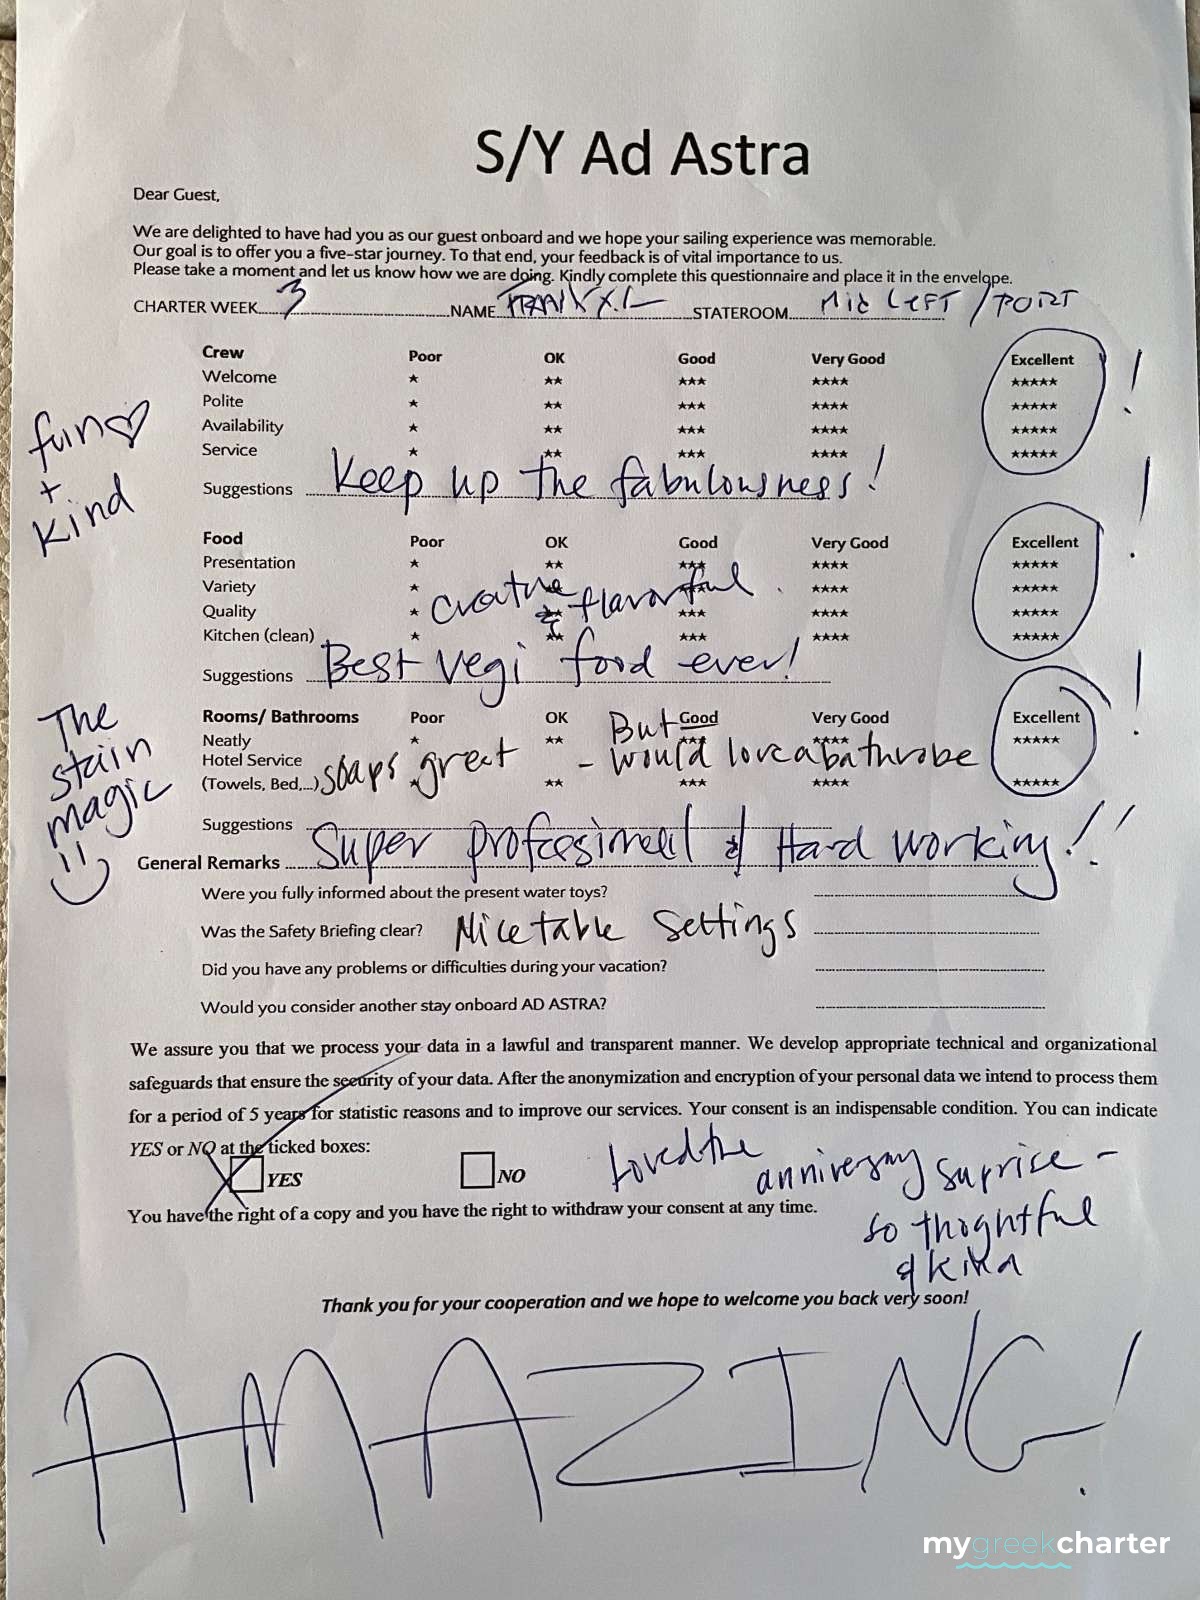 S/Y Ad Astra
Dear Guest,
We are delighted to have had you as our guest onboard and we hope your sailing experience was memorable.
Our goal is to offer you a five-star journey. To that end, your feedback is of vital importance to us.
Please take a moment and let us know how we are doing. Kindly complete this questionnaire and place it in the envelope.
CHARTER WEEK 3 NAME STATEROOM Mid LEFT / PORT
Crew Poor OK Good Very Good Excellent !
Welcome ★ ★★ ★★★ ★★★★ ★★★★★
Polite ★ ★★ ★★★ ★★★★ ★★★★★
Availability ★ ★★ ★★★ ★★★★ ★★★★★
Service ★ ★★ ★★★ ★★★★ ★★★★★
Suggestions Keep up the fabulousness!
fun ♡
+
Kind
Food Poor OK Good Very Good Excellent !
Presentation ★ ★★ ★★★ ★★★★ ★★★★★
Variety ★ ★★ ★★★ ★★★★ ★★★★★
creative & flavorful
Quality ★ ★★ ★★★ ★★★★ ★★★★★
Kitchen (clean) ★ ★★ ★★★ ★★★★ ★★★★★
Suggestions Best vegi food ever!
Rooms/ Bathrooms Poor OK Good Very Good Excellent !
Neatly ★ ★★ ★★★ ★★★★ ★★★★★
Hotel Service
(Towels, Bed,...) ★ ★★ ★★★ ★★★★ ★★★★★
soaps great - But would love a bathrobe
The
stain
magic
Suggestions
General Remarks Super professional & Hard working!!
Were you fully informed about the present water toys?
Was the Safety Briefing clear? Nice table settings
Did you have any problems or difficulties during your vacation?
Would you consider another stay onboard AD ASTRA?
We assure you that we process your data in a lawful and transparent manner. We develop appropriate technical and organizational
safeguards that ensure the security of your data. After the anonymization and encryption of your personal data we intend to process them
for a period of 5 years for statistic reasons and to improve our services. Your consent is an indispensable condition. You can indicate
YES or NO at the ticked boxes:
YES NO
You have the right of a copy and you have the right to withdraw your consent at any time.
Loved the anniversay suprise -
so thoghtful
& kind
Thank you for your cooperation and we hope to welcome you back very soon!
AMAZING!
mygreekcharter